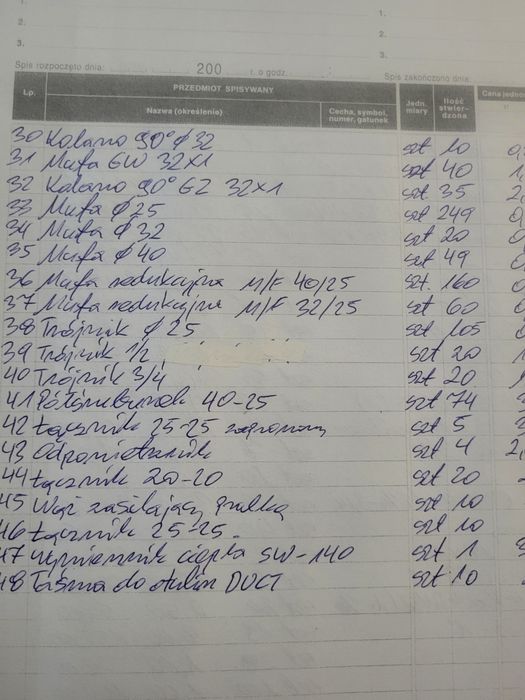 1.
1.
2.
2.
3.
3.
Spis rozpoczęto dnia: 200 r. o godz. Spis zakończono dnia:
Lp. PRZEDMIOT SPISYWANY Jedn. miary Ilość stwier-dzona Cena jedno
Nazwa (określenie) Cecha, symbol, numer, gatunek
30 Kolano 90° ϕ 32 szt 10
31 Mufa GW 32x1 szt 40
32 Kolano 90° GZ 32x1 szt 35
33 Mufa ϕ 25 szt 249
34 Mufa ϕ 32 szt 20
35 Mufa ϕ 40 szt 49
36 Mufa redukcyjna M/F 40/25 szt. 160
37 Mufa redukcyjna M/F 32/25 szt 60
38 Trójnik ϕ 25 szt 105
39 Trójnik 1/2 szt 20
40 Trójnik 3/4 szt 20
41 Półśrubunek 40-25 szt 74
42 Łącznik 25-25 szt 5
43 Odpowietrznik szt 4
44 Łącznik 20-20 szt 20
45 Wąż zasilający pralkę szt 10
46 Łącznik 25-25. szt 10
47 Wymiennik ciepła SW-140 szt 1
48 Taśma do otulin DUCT szt 10